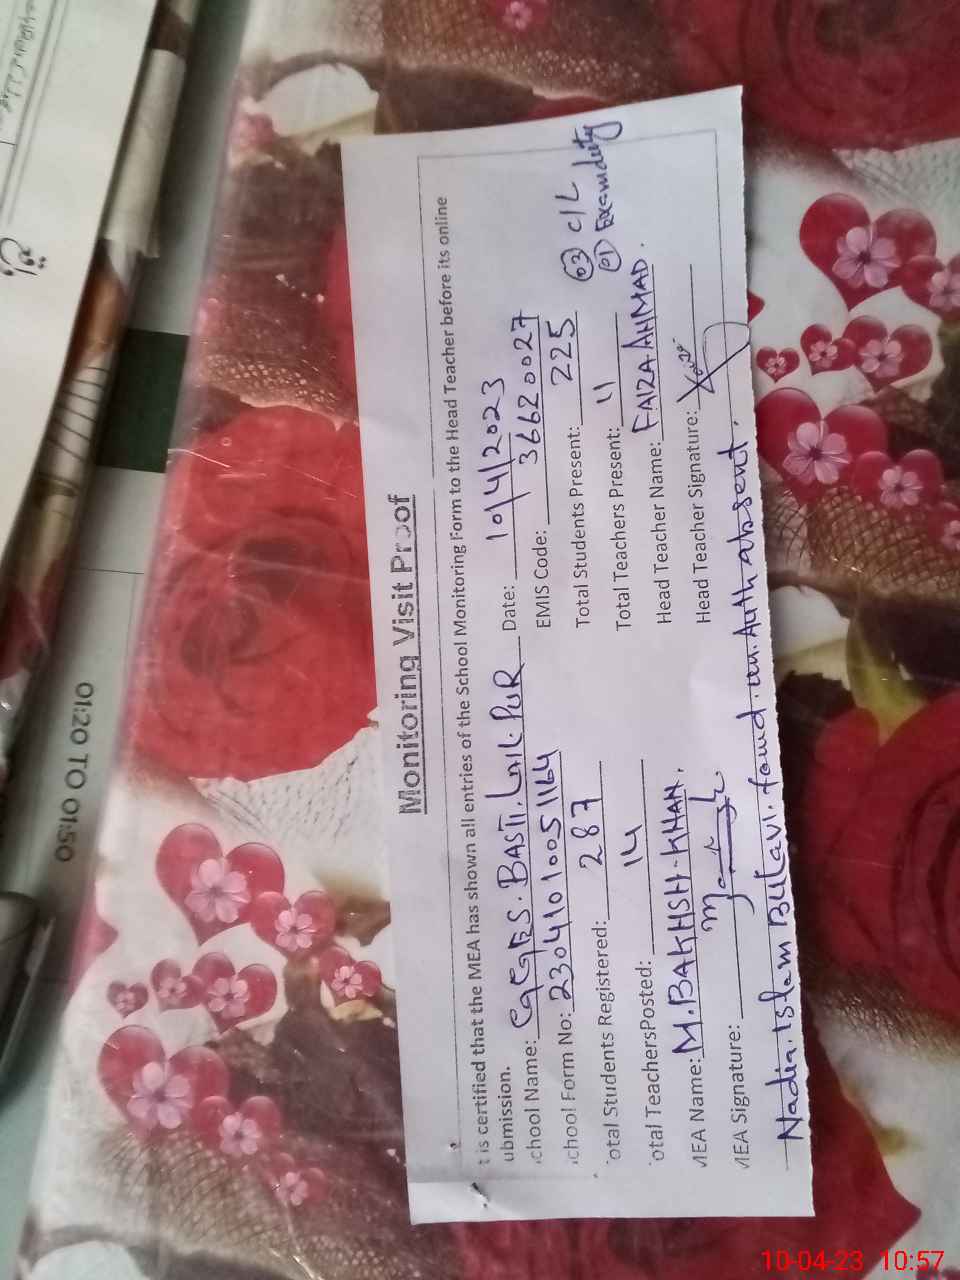 Monitoring Visit Proof
t is certified that the MEA has shown all entries of the School Monitoring Form to the Head Teacher before its online
ubmission.
chool Name: GGES. BASTI. LAIL. PUR Date: 10/4/2023
chool Form No: 23041010051164 EMIS Code: 36620027
otal Students Registered: 287 Total Students Present: 225 03 C/L
otal TeachersPosted: 14 Total Teachers Present: 11 01 Exam duty
MEA Name: M. BAKHSH-KHAN. Head Teacher Name: FAIZA AHMAD.
MEA Signature: Head Teacher Signature:
Nadia. Islam Bulavi. found. un. Auth absent.
01:20 TO 01:50
10-04-23 10:57